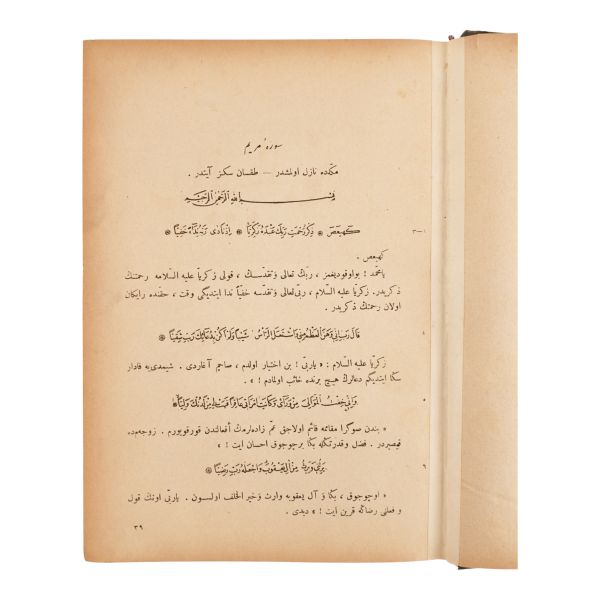 سورهٔ مريم
مكّه‌ده نازل اولمشدر — طقسان سكز آيتدر .
بِسْمِ اللهِ الرَّحْمٰنِ الرَّحِيمِ
كٓهٰيٰعٓصٓ ❁ ذِكْرُ رَحْمَتِ رَبِّكَ عَبْدَهُ زَكَرِيَّا ❁ اِذْ نَادٰى رَبَّهُ نِدَآءً خَفِيًّا ❁
١—٣
كهيعص .
يا محمّد ! بو اوقوديغمز ، ربّك تعالى و تقدّسك ، قولى زكريّا عليه السّلامه رحمتنك
ذكريدر. زكريّا عليه السّلام ، ربّى تعالى و تقدّسه خفيّاً ندا ايتديگى وقت ، حقنده رايكان
اولان رحمتك ذكريدر .
قَالَ رَبِّ اِنّٖى وَهَنَ الْعَظْمُ مِنّٖى وَاشْتَعَلَ الرَّأْسُ شَيْبًا وَلَمْ اَكُنْ بِدُعَآئِكَ رَبِّ شَقِيًّا ❁
٤
زكريّا عليه السّلام : « ياربّى ! بن اختيار اولدم ، صاچم آغاردى . شيمدى‌يه قادار
سكا ايتديگم دعالرك هيچ برنده خائب اولمادم ! » .
وَاِنّٖى خِفْتُ الْمَوَالِىَ مِنْ وَرَآئٖى وَكَانَتِ امْرَاَتٖى عَاقِرًا فَهَبْ لٖى مِنْ لَدُنْكَ وَلِيًّا ❁
٥
« بندن صوڭرا مقامه قائم اولاجق عمّ زاده‌لرمڭ افعالندن قورقويورم . زوجه‌م‌ده
قيصيردر . فضل و قدرتكله بكا بر چوجوق احسان ايت ! » ،
يَرِثُنٖى وَيَرِثُ مِنْ اٰلِ يَعْقُوبَ وَاجْعَلْهُ رَبِّ رَضِيًّا ❁
٦
« او چوجوق ، بكا و آل يعقوبه وارث و خير الخلف اولسون . ياربّى اونك قول
و فعلنى رضاكه قرين ايت ! » ديدى .
٣٩